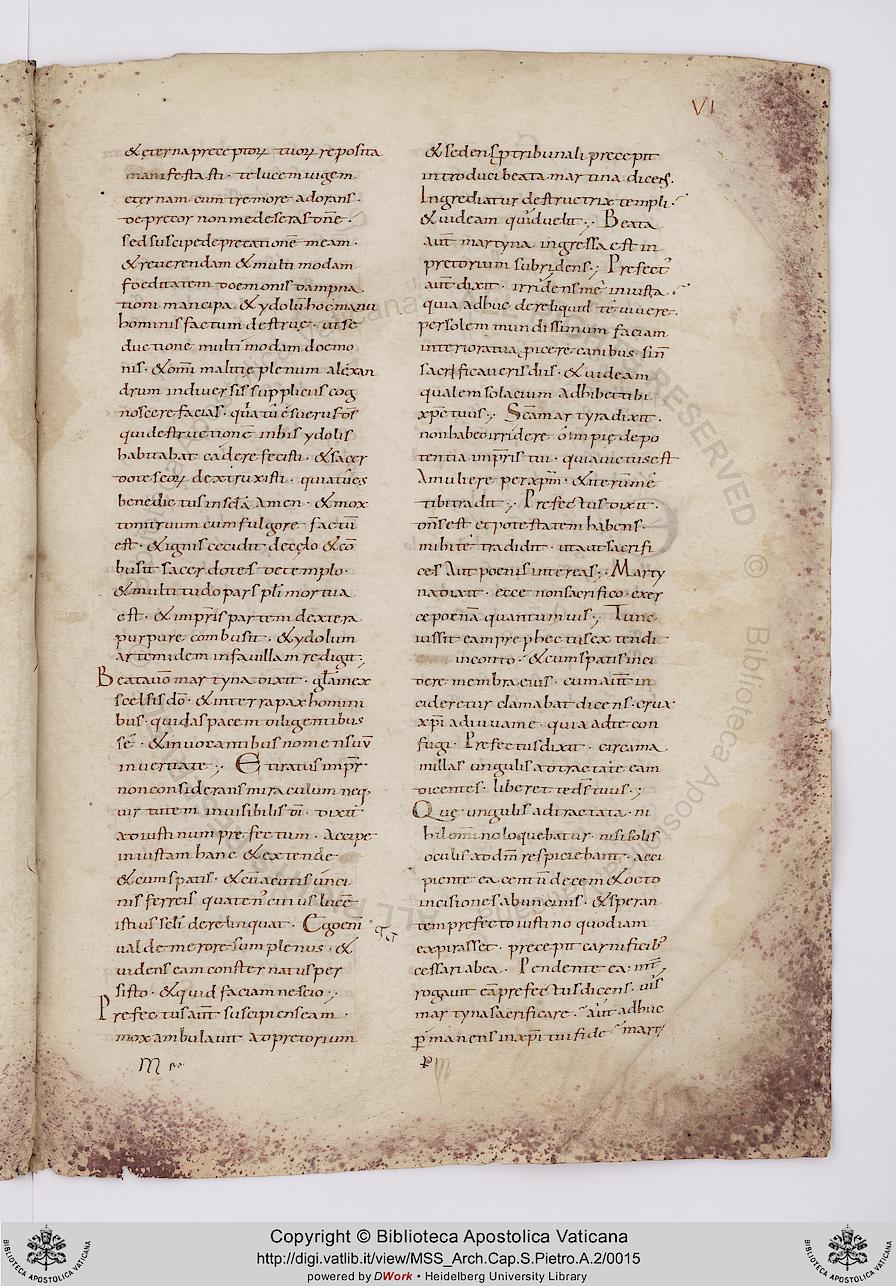 VI
& ęterna preceptoꝝ tuoꝝ reposita
manifestasti · te lucem uigem
eternam cum tremore adorans ·
deprecor non me deseras dn̄e ·
sed suscipe deprecationē meam ·
& reuerendam & multimodam
foeditatem doemonis dampna
tioni mancipa · & ydolū hoc manu
hominis factum destrue · ut se
ductione multimodam doemo
nis · & om̄i malitię plenum alexan
drum in diuersis suppliciis cog
noscere facias ·
qui destructionē in his ydolis
habitabat cadere fecisti · & sacer
dotes eoꝝ dextruxisti · quia tu es
benedictus in scl̄a amen · & mox
tonitruum cum fulgore factū
est · & ignis cecidit de cęlo & cō
busit sacerdotes de templo ·
& multitudo pars pl̄i mortua
est · & imp̄ris partem dextera
purpure combusit · & ydolum
artemidem in fauillam redigit ·,
Beata uō martyna dixit · gl̄a in ex
scelsis dō · & in terra pax homini
bus · qui das pacem diligentibus
sē · & inuocantibus nomen suū
in ueritate ·, Et iratus imp̄r
non considerans miraculum neq·
uirtutem inuisibilis dī · dixit
ad iustinum prefectum · Accipe
iniustam hanc & extende
& cum spatis · & cū acutis unci
nis ferreis quaten' citius lucē
istius scl̄i derelinquat · Ego eni
ualde merore sum plenus · &
uidens eam consternatus per
sisto · & quid faciam nescio ·,
Prefectus aūt suscipiens eam ·
mox ambulauit ad pretorium
M
& sedens p tribunali precepit
introduci beata martina dicens.
Ingrediatur destructrix templi ·
& uideam quid uelit ·, Beata
aūt martyna ingressa est in
pretorium subridens ·, Prefect'
aūt dixit · irridens mē iniusta ·
quia adhuc dereliquid tē uiuere ·
per solem mundissimum faciam
interiora tua picere canibus · sin̄
sacrificaueris diis · & uideam
qualem solacium adhibet tibi
xp̄e tuus ·, Sc̄a martyra dixit ·
non habeo irridere o impie de po
tentia imp̄ris tui · quia uictus est
A muliere per xp̄m ·
tibi tradit ·, Prefectus dixit ·
om̄s est et potestatem habens ·
mihi tē tradidit · ut aut sacrifi
ces aut poenis intereas ·, Marty
na dixit · ecce non sacrifico · exer
ce poenā quantum uis ·, Tunc
iussit eam prephectus extendi
in contto · & cum spatis inci
dere membra eius · cum aūt in
cideretur clamabat dicens · crux
xp̄i adiuua me · quia ad te con
fugi · Prefectus dixit · circa ma
millas ungulis adtractate eam
dicentes · liberet te ds̄ tuus ·,
Quę ungulis adtractata · ni
hil om̄ino loquebatur · nisi solis
oculis ad dm̄ respiciebant · acci
piente ea centū decem & octo
incisiones ab uncinis · & speran
tem prefecto iustino quod iam
expirasset · precepit carnificib'
cessari ab ea · Pendente ea
rogauit eā prefectus dicens · uis
martyna sacrificare · aut adhuc
ꝑmanens in xp̄i tui fide · mart